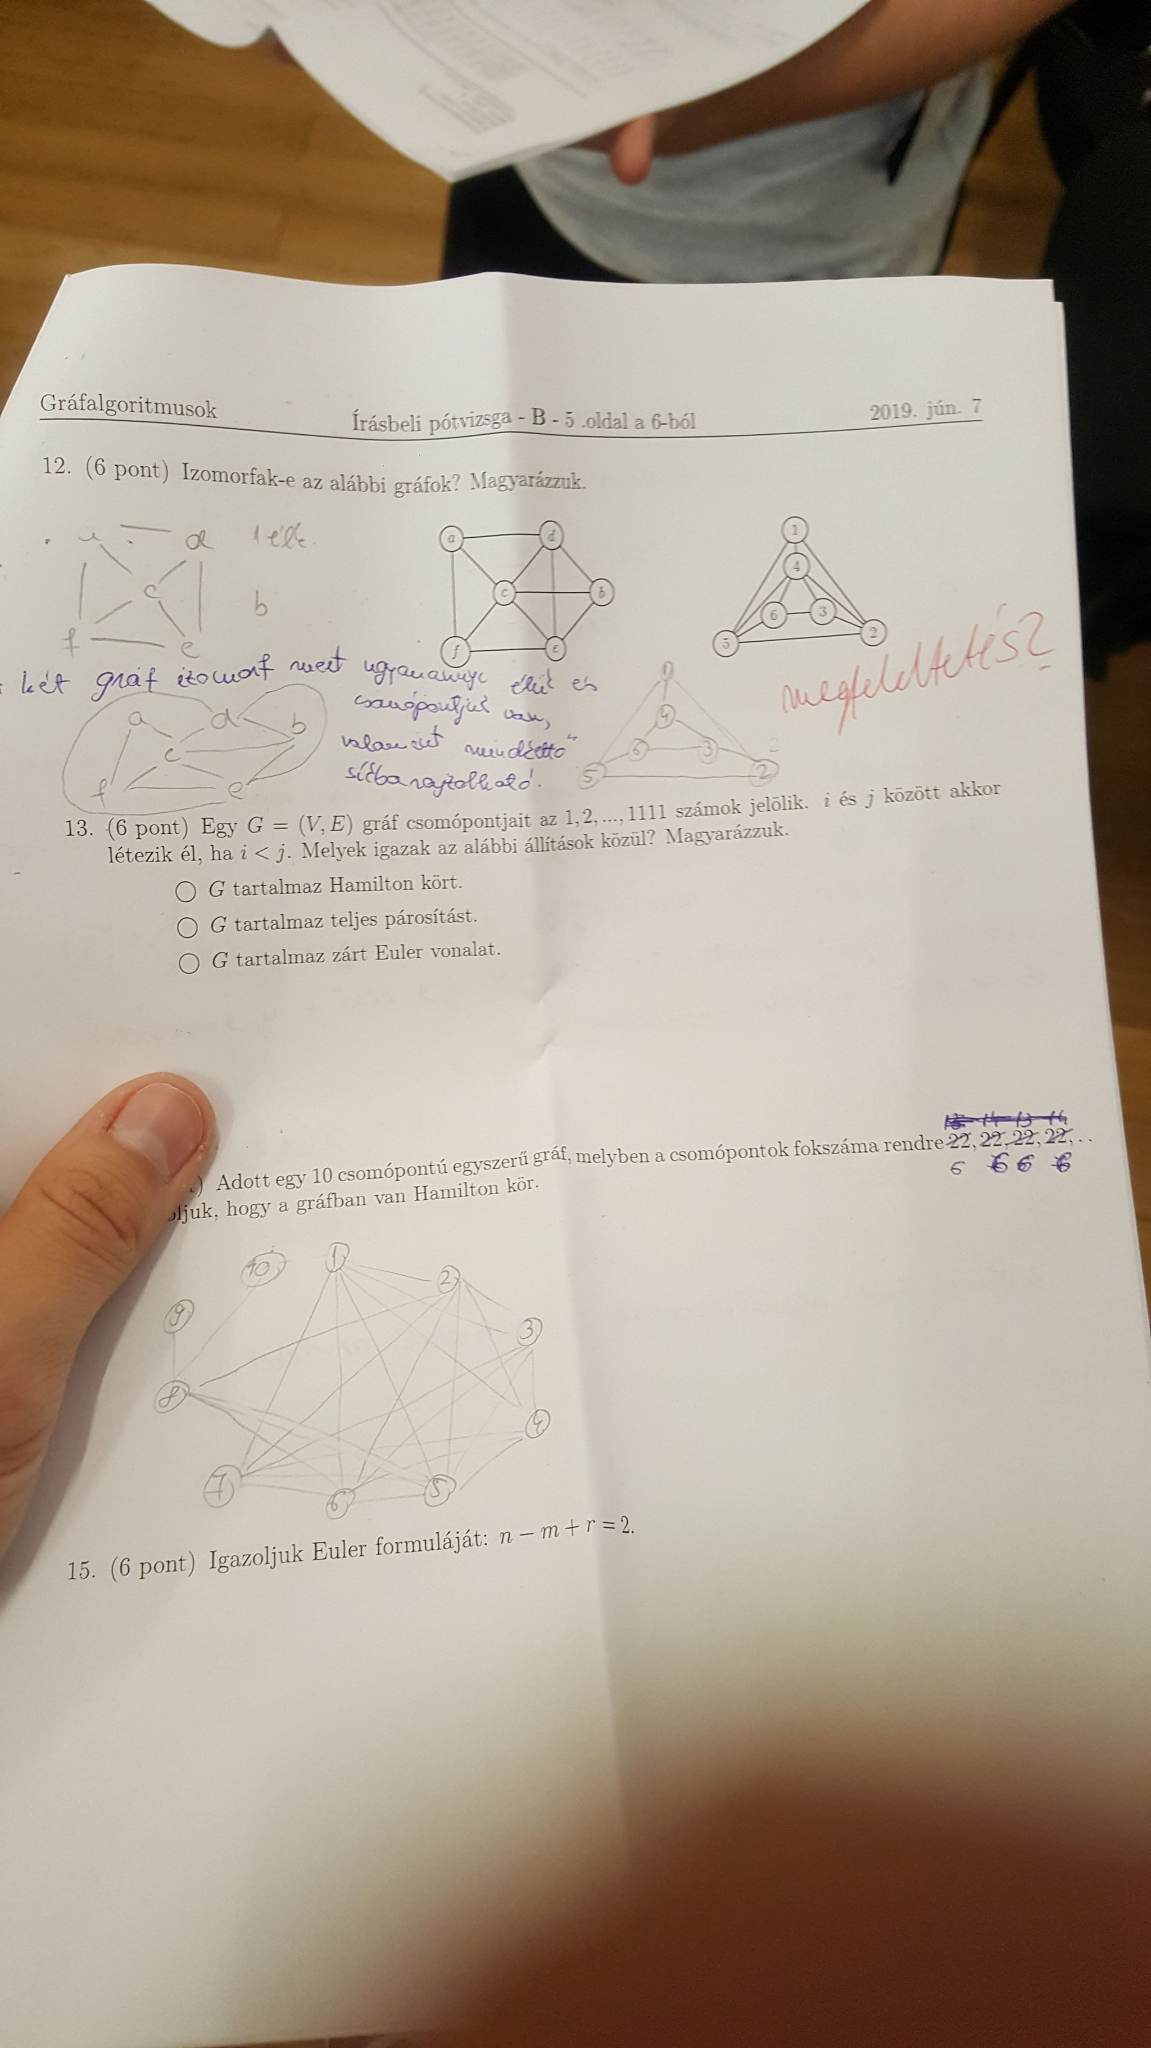 Gráfalgoritmusok
Írásbeli pótvizsga - B - 5 .oldal a 6-ból
2019. jún. 7
12. (6 pont) Izomorfak-e az alábbi gráfok? Magyarázzuk.
a d
c b
f e
1
4
6 3
5 2
d
c b
f e
két gráf izomorf mert ugyanannyi élük és
csanópontjuk van,
valamint mindkettő
síkbarajzolható.
megfeleltetés?
a d b
c
f e
4
6 3
5 2
13. (6 pont) Egy G = (V, E) gráf csomópontjait az 1, 2, ..., 1111 számok jelölik. i és j között akkor
létezik él, ha i < j. Melyek igazak az alábbi állítások közül? Magyarázzuk.
G tartalmaz Hamilton kört.
G tartalmaz teljes párosítást.
G tartalmaz zárt Euler vonalat.
14 13 14
) Adott egy 10 csomópontú egyszerű gráf, melyben a csomópontok fokszáma rendre 22, 22, 22, 22, . .
6 6 6 6
juk, hogy a gráfban van Hamilton kör.
10 1 2
9 3
8 4
7 6 5
15. (6 pont) Igazoljuk Euler formuláját: n − m + r = 2.